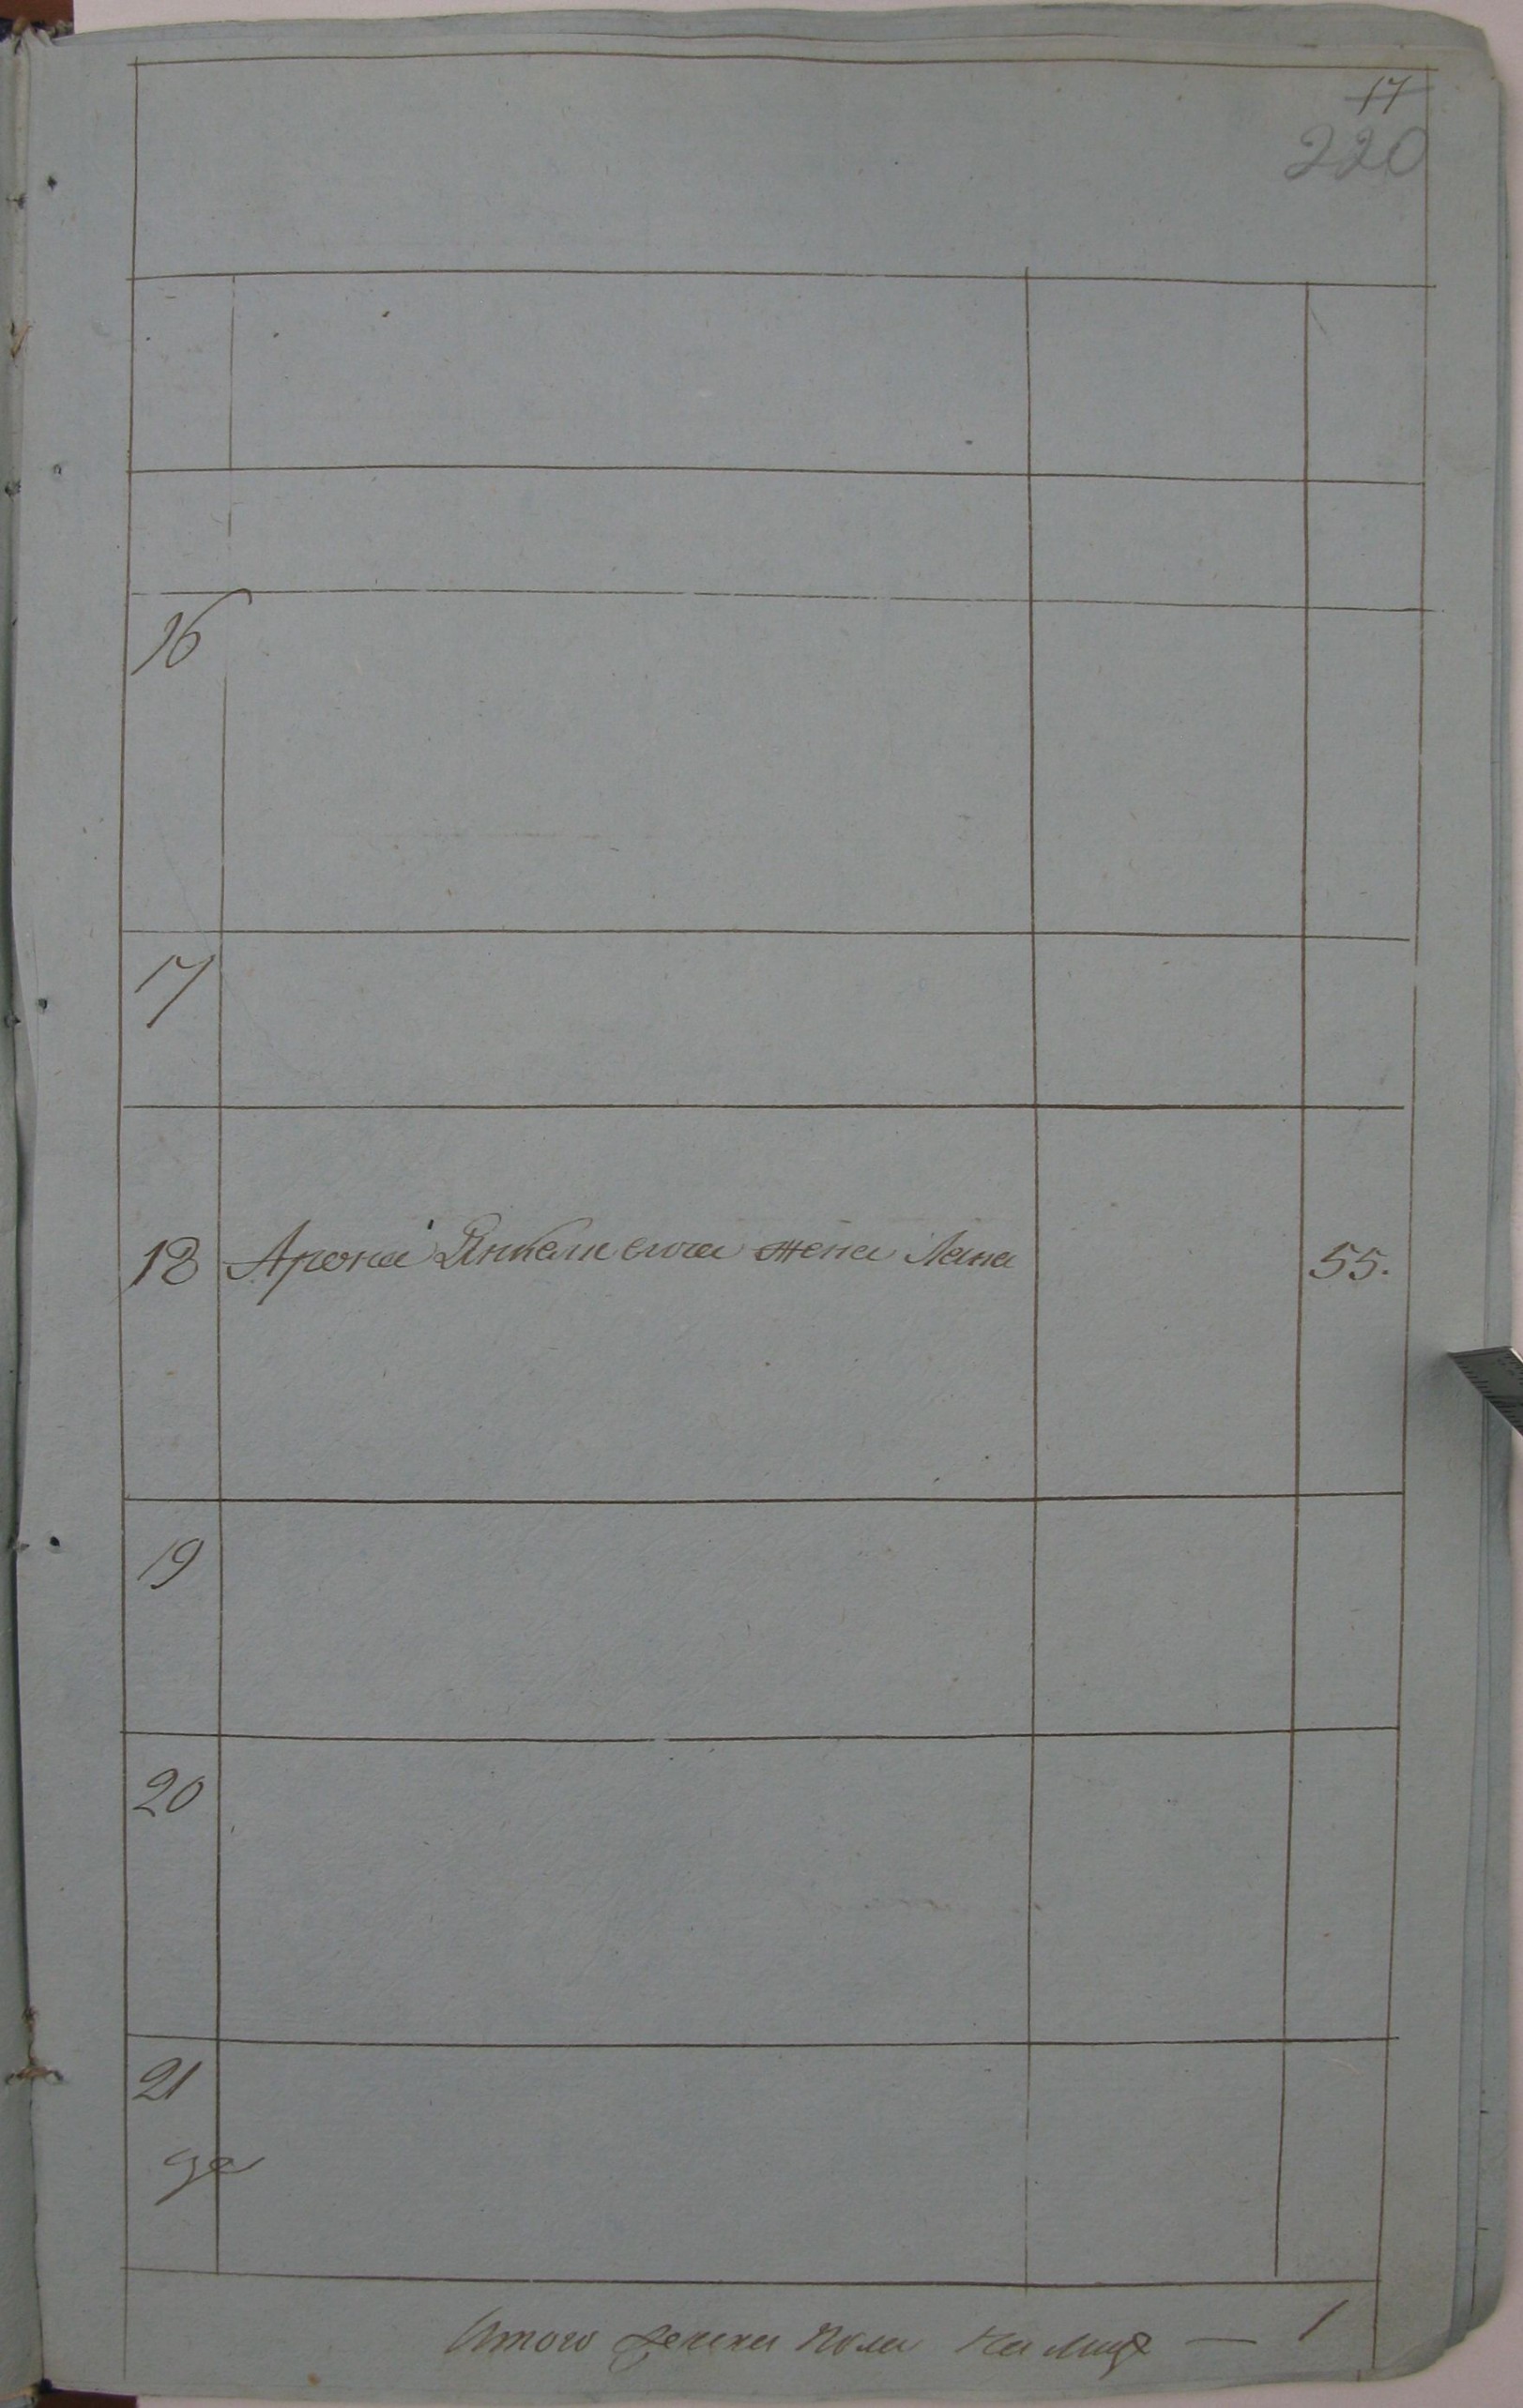 17
220
16
17
18 Арона Янкелиовича жена Лана 55.
19
20
21
Итого женска пола на лицо — 1